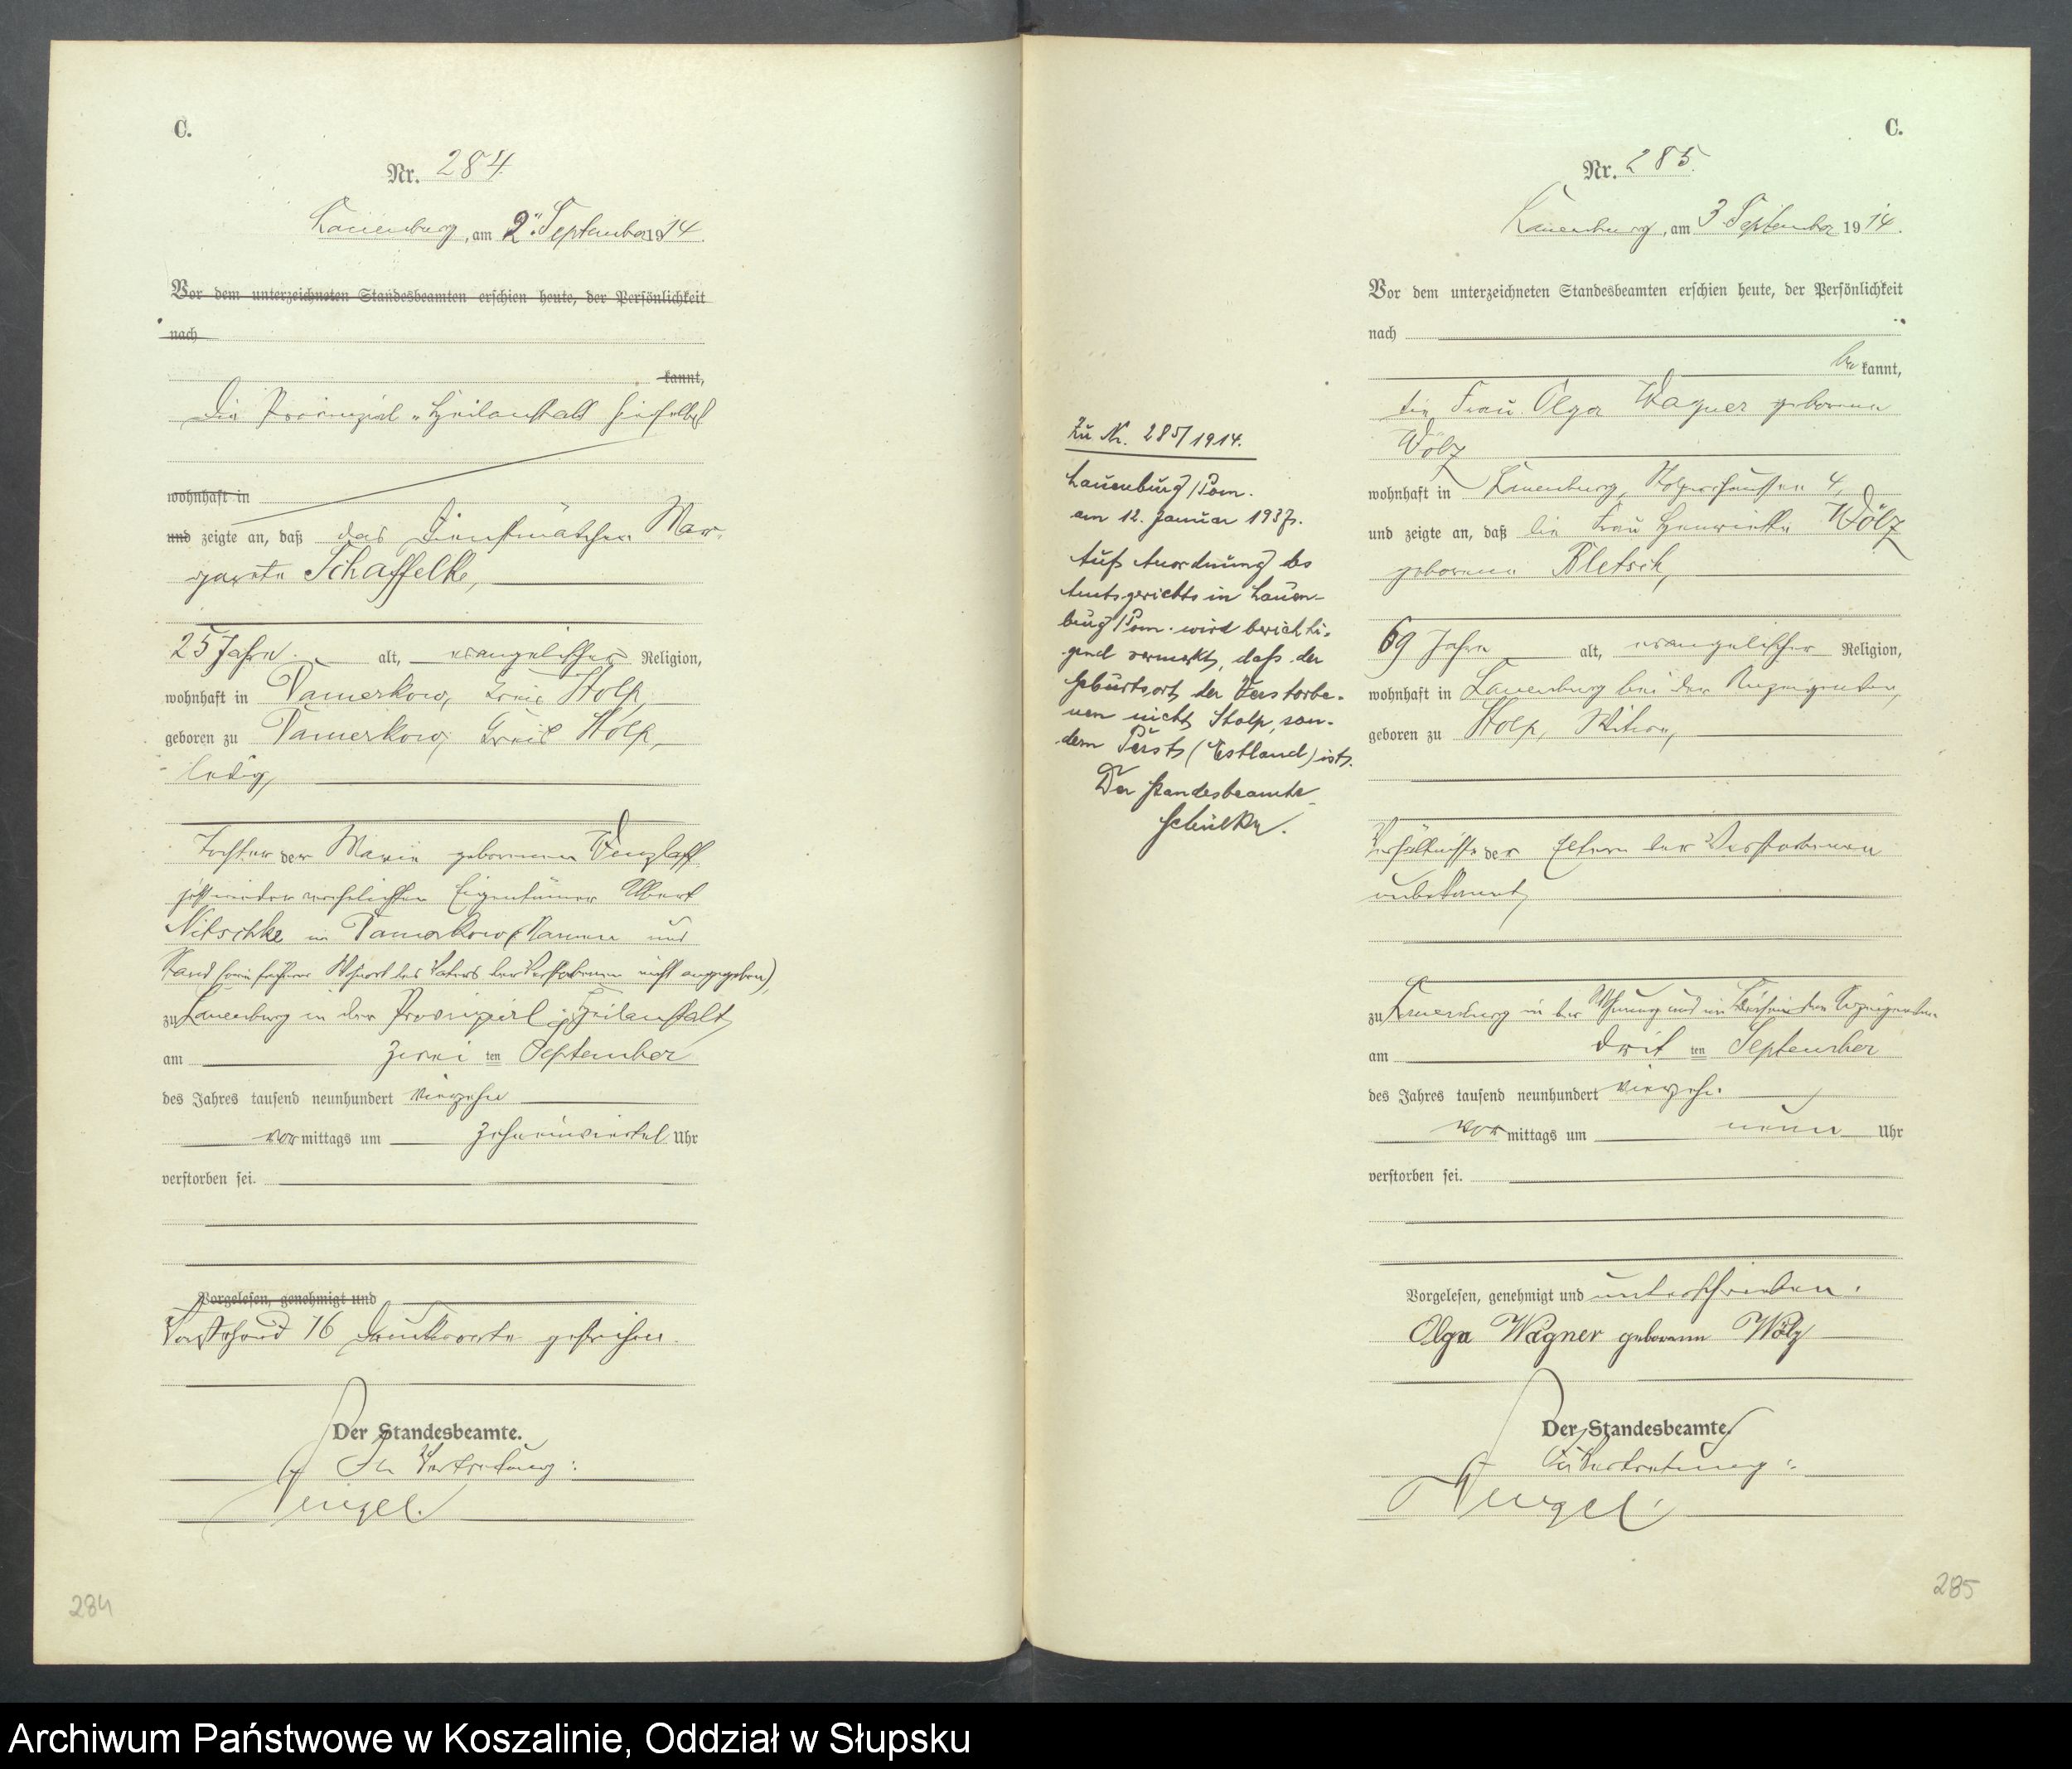 C.
Nr. 284.
Lauenburg, am 2. September 1914.
Vor dem unterzeichneten Standesbeamten erschien heute, der Persönlichkeit
nach
kannt,
Die Provinzial-Heilanstalt hierselbst
wohnhaft in
und zeigte an, daß das Dienstmädchen Mar-
garete Schaffelke,
25 Jahre alt, evangelischer Religion,
wohnhaft in Damerkow, Kreis Stolp,
geboren zu Damerkow, Kreis Stolp,
ledig,
Tochter der Marie geborenen Venzlaff
jetzt wieder verehelichten Eigentümer Albert
Nitschke in Damerkow (Namen und
Stand sowie früherer Wohnort des Vaters der Verstorbenen nicht angegeben),
zu Lauenburg in der Provinzial-Heilanstalt,
am zweiten September
des Jahres tausend neunhundert vierzehn
vormittags um zehneinviertel Uhr
verstorben sei.
Vorgelesen, genehmigt und
Vorstehend 16 Druckworte gestrichen.
Der Standesbeamte.
In Vertretung:
284
C.
Nr. 285.
Lauenburg, am 3. September 1914.
Vor dem unterzeichneten Standesbeamten erschien heute, der Persönlichkeit
nach
bekannt,
die Frau Olga Wagner geborene
Wölz
wohnhaft in Lauenburg, Stolperchaussee 4,
und zeigte an, daß die Frau Henriette Wölz
geborene Bletsch,
69 Jahre alt, evangelischer Religion,
wohnhaft in Lauenburg bei der Anzeigenden,
geboren zu Stolp, Witwe,
Verhältnisse der Eltern der Verstorbenen
unbekannt,
zu Lauenburg in der Wohnung und im Beisein der Anzeigenden
am dritten September
des Jahres tausend neunhundert vierzehn
vormittags um neun Uhr
verstorben sei.
Vorgelesen, genehmigt und unterschrieben.
Olga Wagner geborene Wölz
Der Standesbeamte.
In Vertretung:
Zu Nr. 285/1914.
Lauenburg/Pom.
am 12. Januar 1937.
Auf Anordnung des
Amtsgerichts in Lauen-
burg/Pom. wird berichti-
gend vermerkt, daß der
Geburtsort der Verstorbe-
nen nicht Stolp, son-
dern (Estland) ist.
Der Standesbeamte
285
Archiwum Państwowe w Koszalinie, Oddział w Słupsku